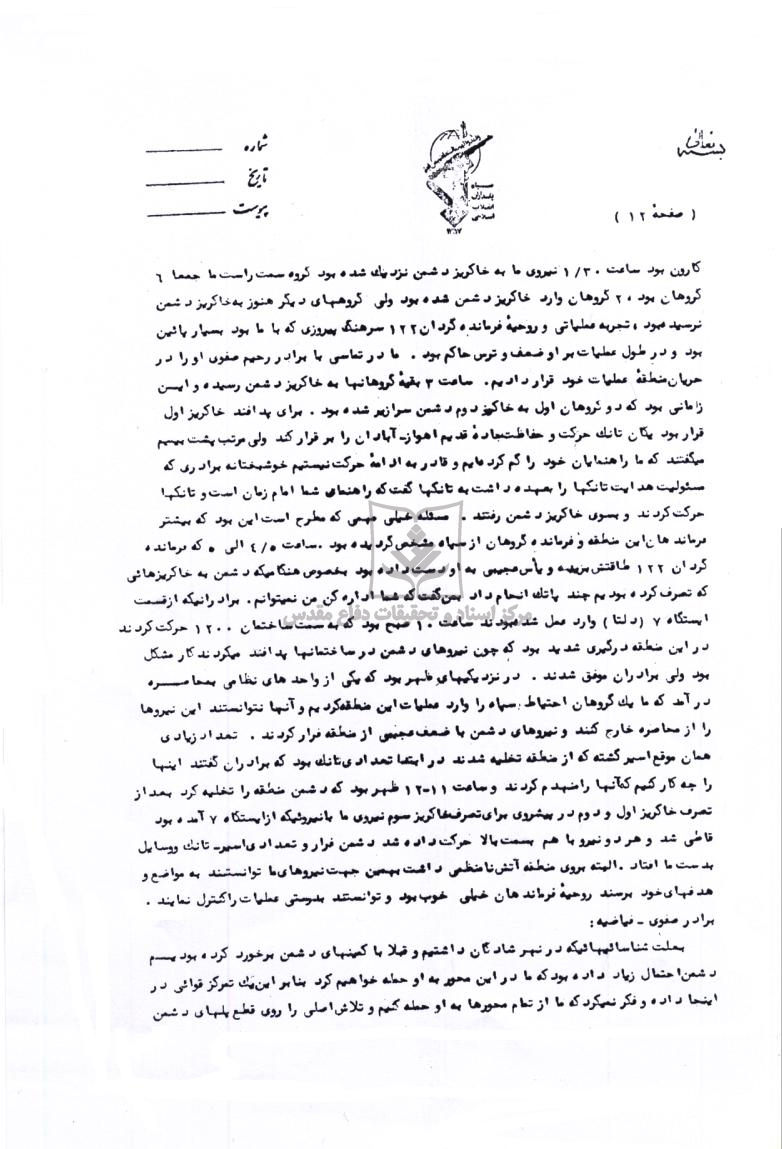 بسمه تعالی
شماره
تاریخ
پیوست
سپاه
پاسداران
انقلاب
اسلامی
( صفحهٔ ۱۲ )
کارون بود ساعت ۱/۳۰ نیروی ما به خاکریز دشمن نزدیک شده بود گروه سمت راست ما جمعا ۶
گروهان بود ، ۲ گروهان وارد خاکریز دشمن شده بود ولی گروههای دیگر هنوز به خاکریز دشمن
نرسیده بود ، تجربه عملیاتی و روحیهٔ فرمانده گردان ۱۲۲ سرهنگ پیروزی که با ما بود بسیار پائین
بود و در طول عملیات بر او ضعف و ترس حاکم بود . ما در تماسی با برادر رحیم صفوی او را در
جریان منطقهٔ عملیات خود قرار دادیم . ساعت ۳ بقیهٔ گروهانها به خاکریز دشمن رسیده و ایسن
زمانی بود که دو گروهان اول به خاکریز دوم دشمن سرازیر شده بود . برای پدافند خاکریز اول
قرار بود یگان تانک حرکت و حفاظت جادهٔ قدیم اهواز ـ آبادان را بر قرار کند ولی مرتب پشت بیسیم
میگفتند که ما راهنمایان خود را گم کرده‌ایم و قادر به ادامهٔ حرکت نیستیم خوشبختانه برادری که
مسئولیت هدایت تانکها را بعهده داشت به تانکها گفت که راهنمای شما امام زمان است و تانکها
حرکت کردند و بسوی خاکریز دشمن رفتند . مسئله خیلی مهمی که مطرح است این بود که بیشتر
فرمانده هان این منطقه و فرمانده گروهان از سپاه مشخص گردیده بود . ساعت ۴/۵ الی ۵ که فرمانده
گردان ۱۲۲ طاقتش بریده و یأس عجیبی به او دست داده بود بخصوص هنگامیکه دشمن به خاکریزهائی
که تصرف کرده بودیم چند پاتک انجام داد بمن گفت که شما اداره کن من نمیتوانم . برادرانیکه از قسمت
ایستگاه ۷ ( دلتا ) وارد عمل شده بودند ساعت ۱۰ صبح بود که به سمت ساختمان ۱۲۰۰ حرکت کردند
در این منطقه درگیری شدید بود که چون نیروهای دشمن در ساختمانها پدافند میکردند کار مشکل
بود ولی برادران موفق شدند . در نزدیکیهای ظهر بود که یکی از واحد های نظامی بمحاصــره
در آمد که ما یک گروهان احتیاط سپاه را وارد عملیات این منطقه کردیم و آنها نتوانستند این نیروها
را از محاصره خارج کنند و نیروهای دشمن با ضعف عجیبی از منطقه فرار کردند . تعداد زیادی
همان موقع اسیر گشته که از منطقه تخلیه شدند در ابتدا تعدادی تانک بود که برادران گفتند اینها
را چه کار کنیم که آنها را منهدم کردند و ساعت ۱۱-۱۲ ظهر بود که دشمن منطقه را تخلیه کرد بعد از
تصرف خاکریز اول و دوم در پیشروی برای تصرف خاکریز سوم نیروی ما با نیروئیکه از ایستگاه ۷ آمده بود
قاطی شد و هر دو نیرو با هم بسمت بالا حرکت داده شد دشمن فرار و تعدادی اسیر ـ تانک و وسایل
بدست ما افتاد . البته بروی منطقه آتش نامنظمی داشت بهمین جهت نیروهای ما توانستند به مواضع و
هدفهای خود برسند روحیهٔ فرمانده هان خیلی خوب بود و توانستند بدرستی عملیات را کنترل نمایند .
برادر صفوی ـ فیاضیه :
بعلت شناسائیهائیکه در نهر شادگان داشتیم و قبلا با کمینهای دشمن برخورد کرده بودیسم
دشمن احتمال زیاد داده بود که ما در این محور به او حمله خواهیم کرد بنابر این یک تمرکز قوائی در
اینجا داده و فکر نمیکرد که ما از تمام محورها به او حمله کنیم و تلاش اصلی را روی قطع پلهای دشمن
مرکز اسناد و تحقیقات دفاع مقدس